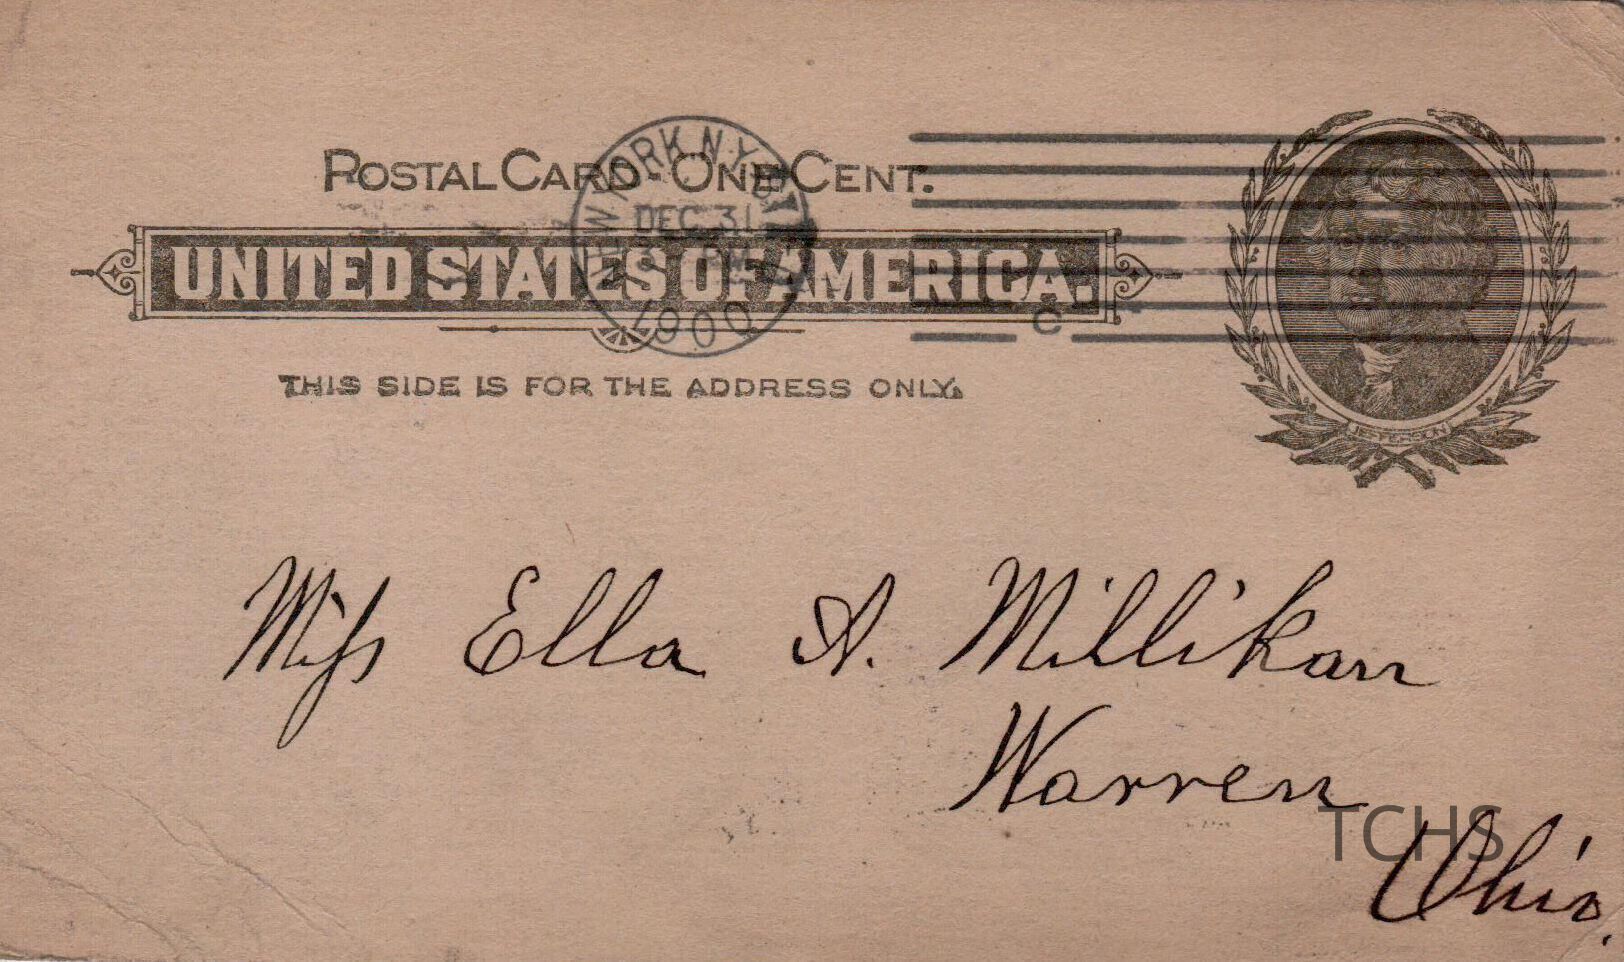 POSTAL CARD · ONE CENT.
NEW YORK, N.Y.
DEC 31
1900
UNITED STATES OF AMERICA.
C
THIS SIDE IS FOR THE ADDRESS ONLY.
JEFFERSON
Miss Ella A. Millikan
Warren
TCHS
Ohio.